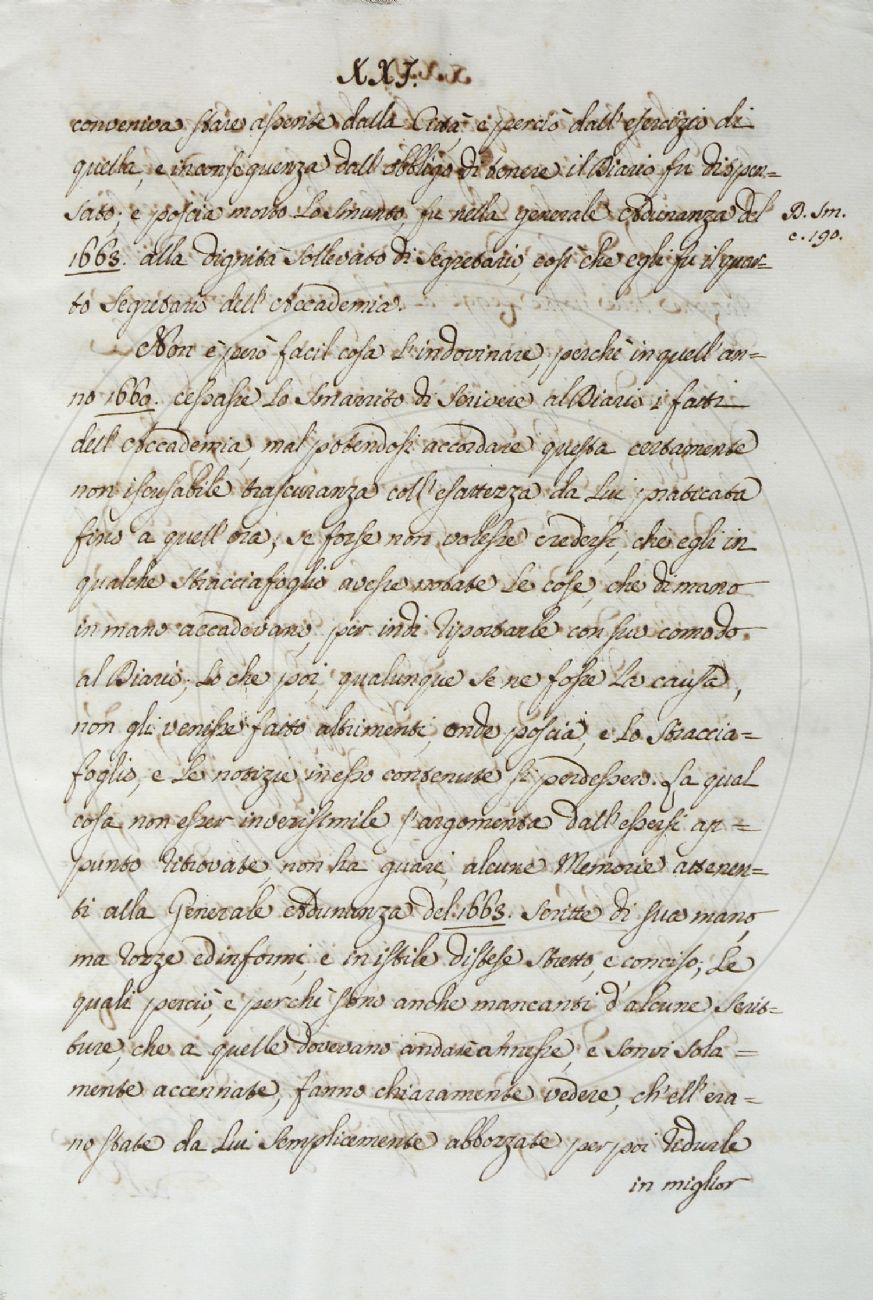 XXI.
conveniva stare assente dalla Città, e perciò dall'esercizio di
quella, e in conseguenza dall'obbligo di tenere il Diario fu dispen=
sato; e poscia morto Lo Smunto, fu nella generale Adunanza del
D. Sm.
c. 190.
1663. alla dignità sollevato di Segretario, così che egli fu il quar=
to Segretario dell'Accademia.
Non è però facil cosa l'indovinare, perchè in quell'an=
no 1660. cessasse Lo Smarrito di scrivere al Diario i fatti
dell'Accademia, mal potendosi accordare questa certamente
non iscusabile trascuranza coll'esattezza da Lui praticata
fino a quell'ora; se forse non volesse credersi, che egli in
qualche stracciafoglio avesse notate Le cose, che di mano
in mano accadevano, per indi riportarle con suo comodo
al Diario; Lo che poi, qualunque se ne fosse La causa,
non gli venisse fatto altrimenti, onde poscia, e Lo straccia=
foglio, e Le notizie in esso contenute si perdessero. La qual
cosa non esser inverisimile s'argomenta dall'essersi ap=
punto ritrovate, non ha guari, alcune Memorie attenen=
ti alla Generale Adunanza del 1663. scritte di sua mano,
ma rozze ed informi, e in istile distese stretto, e conciso; Le
quali perciò, e perchè sono anche mancanti d'alcune scrit=
ture, che a quelle dovevano andare annesse, e sonvi sola=
mente accennate, fanno chiaramente vedere, ch'ell'era=
no state da Lui semplicemente abbozzate per poi ridurle
in miglior